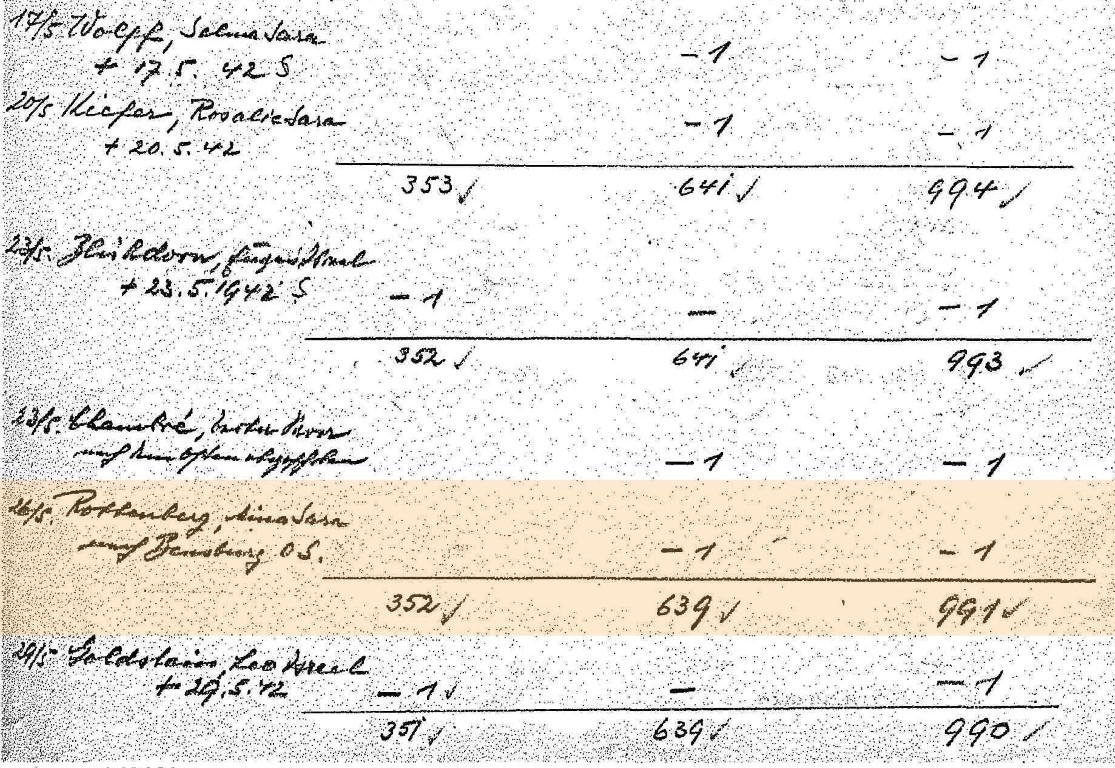 17/5. Wolff, Selma Sara -1 -1
+ 17.5. 42 S
20/5 Kiefer, Rosalie Sara -1 -1
+ 20.5.42
353 ✓ 641 ✓ 994 ✓
23/5. Israel
+ 23.5.1942 S -1 — -1
352 ✓ 641 ✓ 993 ✓
23/5. Chambré,
nach dem Osten abgeschoben -1 -1
26/5. Rothenberg, Sara
nach O S. -1 -1
352 ✓ 639 ✓ 991 ✓
29/5 Goldstein, Leo Israel
+ 29.5.42 -1 ✓ — -1
351 ✓ 639 ✓ 990 ✓